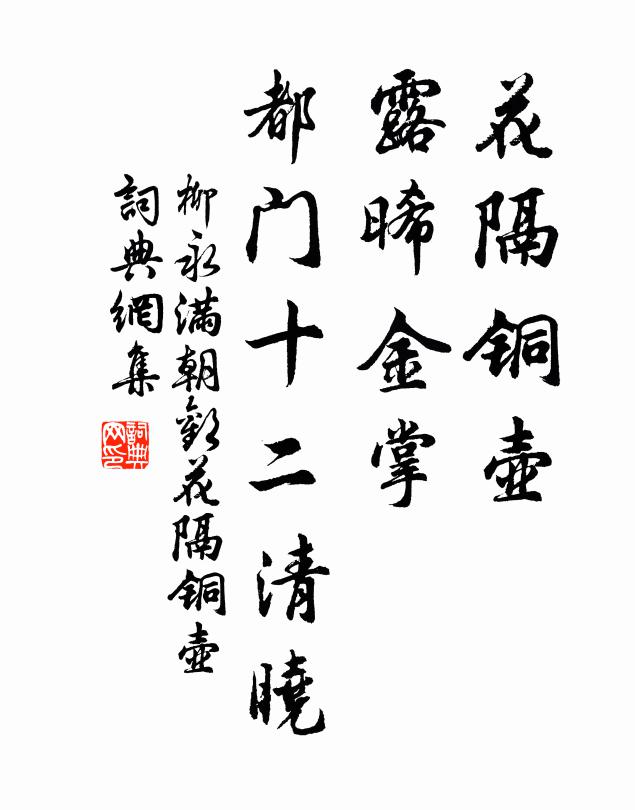 花隔铜壶
露晞金掌
都门十二清晓
柳永满朝歡花隔铜壶
詞典網集
詞典网印